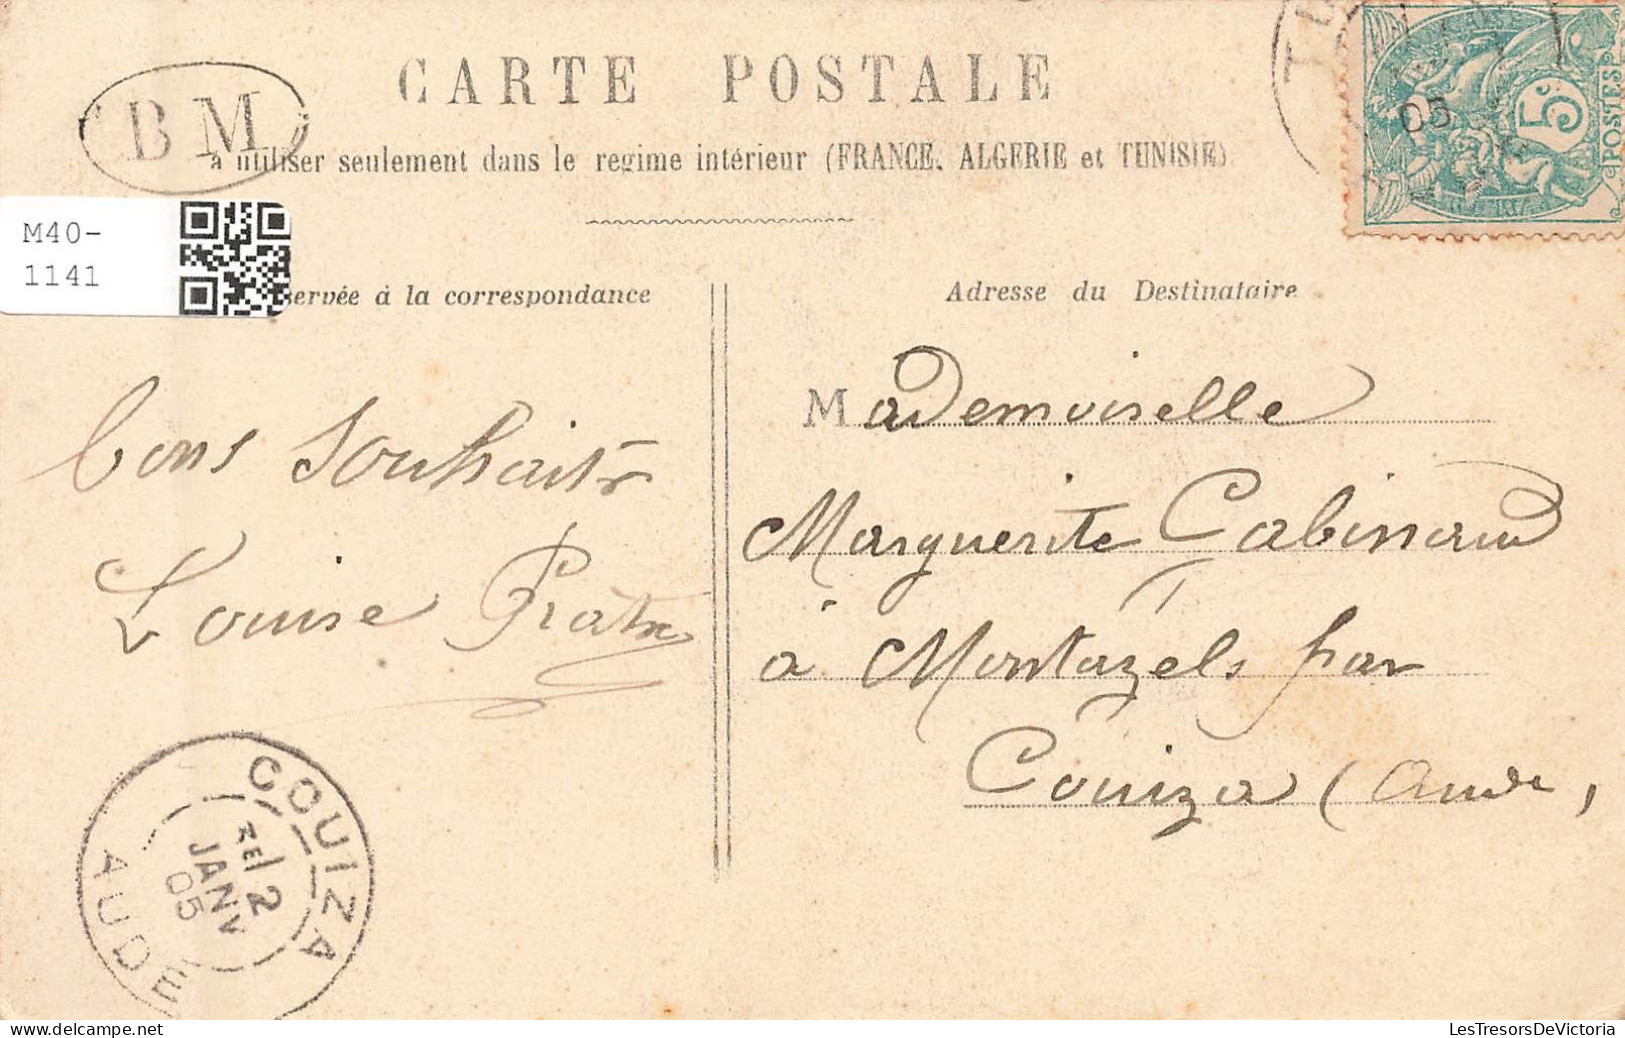 CARTE POSTALE
BM
à utiliser seulement dans le regime intérieur (FRANCE, ALGERIE et TUNISIE)
POSTES
5c
05
M40-
1141
servée à la correspondance
Adresse du Destinataire
bons souhaits
Louise
Mademoiselle
Marguerite Gabinaud
à Montazels par
Couiza (Aude)
COUIZA
2
JANV
05
AUDE
delcampe.net
LesTresorsDeVictoria